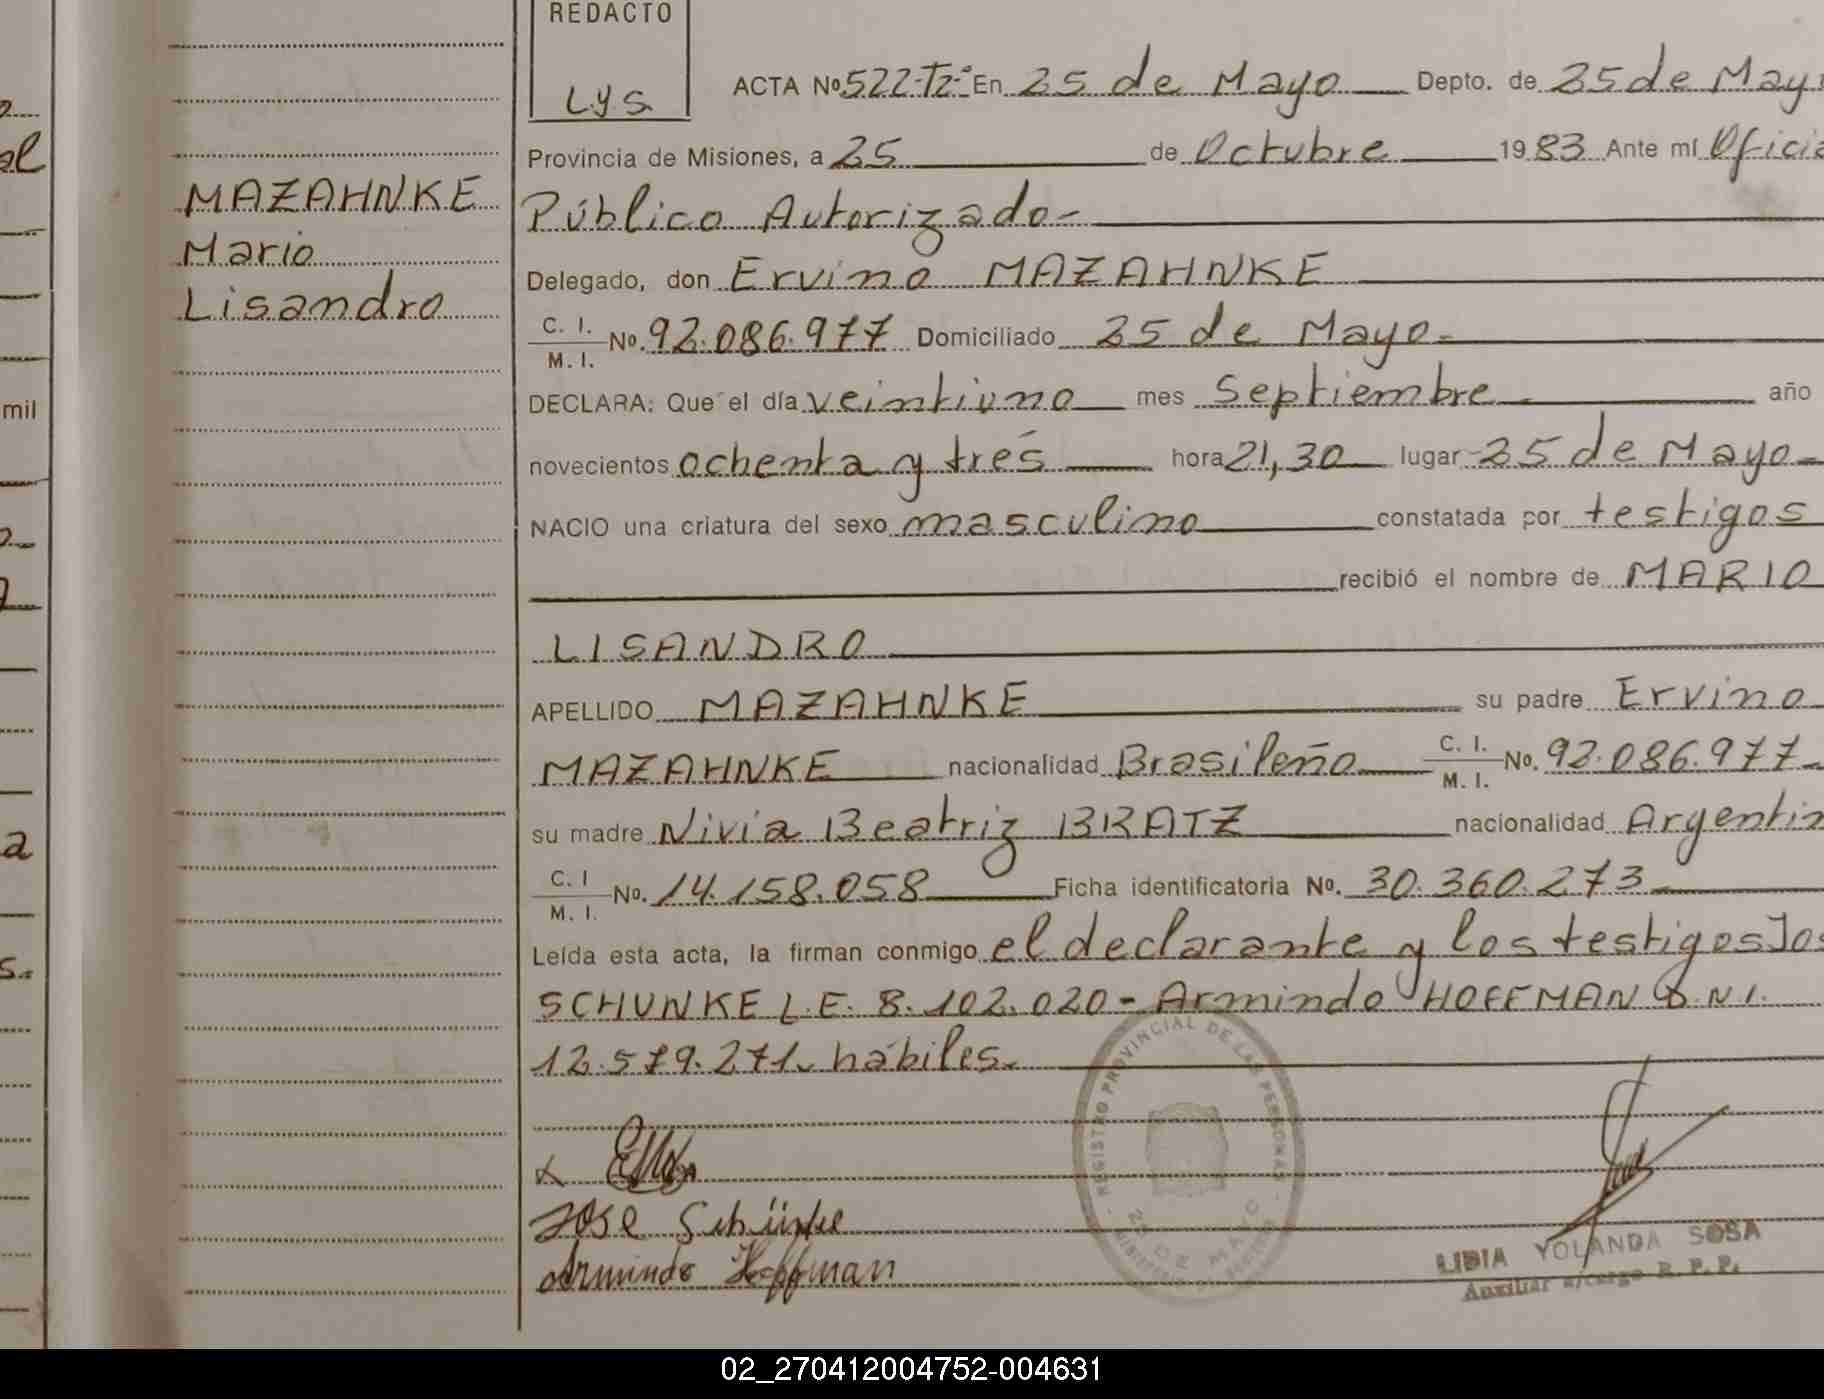 REDACTO
Lys
ACTA Nº 522-Tº2º En 25 de Mayo Depto. de 25 de May
Provincia de Misiones, a 25 de Octubre 1983 Ante mí Oficia
MAZAHNKE
Mario
Lisandro
Público Autorizado-
Delegado, don Ervino MAZAHNKE
C. I. M. I. No. 92.086.977 Domiciliado 25 de Mayo-
DECLARA: Que el día veintiuno mes Septiembre año
novecientos ochenta y trés hora 21,30 lugar 25 de Mayo-
NACIO una criatura del sexo masculino constatada por testigos
recibió el nombre de MARIO
LISANDRO
APELLIDO MAZAHNKE su padre Ervino
MAZAHNKE nacionalidad Brasileño C. I. M. I. No. 92.086.977-
su madre Nivia Beatriz BRATZ nacionalidad Argentin
C. I M. I. No. 14.158.058 Ficha identificatoria No. 30.360.273-
Leída esta acta, la firman conmigo el declarante y los testigos Jos
SCHUNKE L.E. 8.102.020- Armindo HOFFMAN D.N.I.
12.579.271- hábiles-
x
Jose Schünke
Armindo Hoffman
REGISTRO PROVINCIAL DE LAS PERSONAS
25 DE MAYO
LIDIA YOLANDA SOSA
Auxiliar a/cargo R. P. P.
mil
02_270412004752-004631